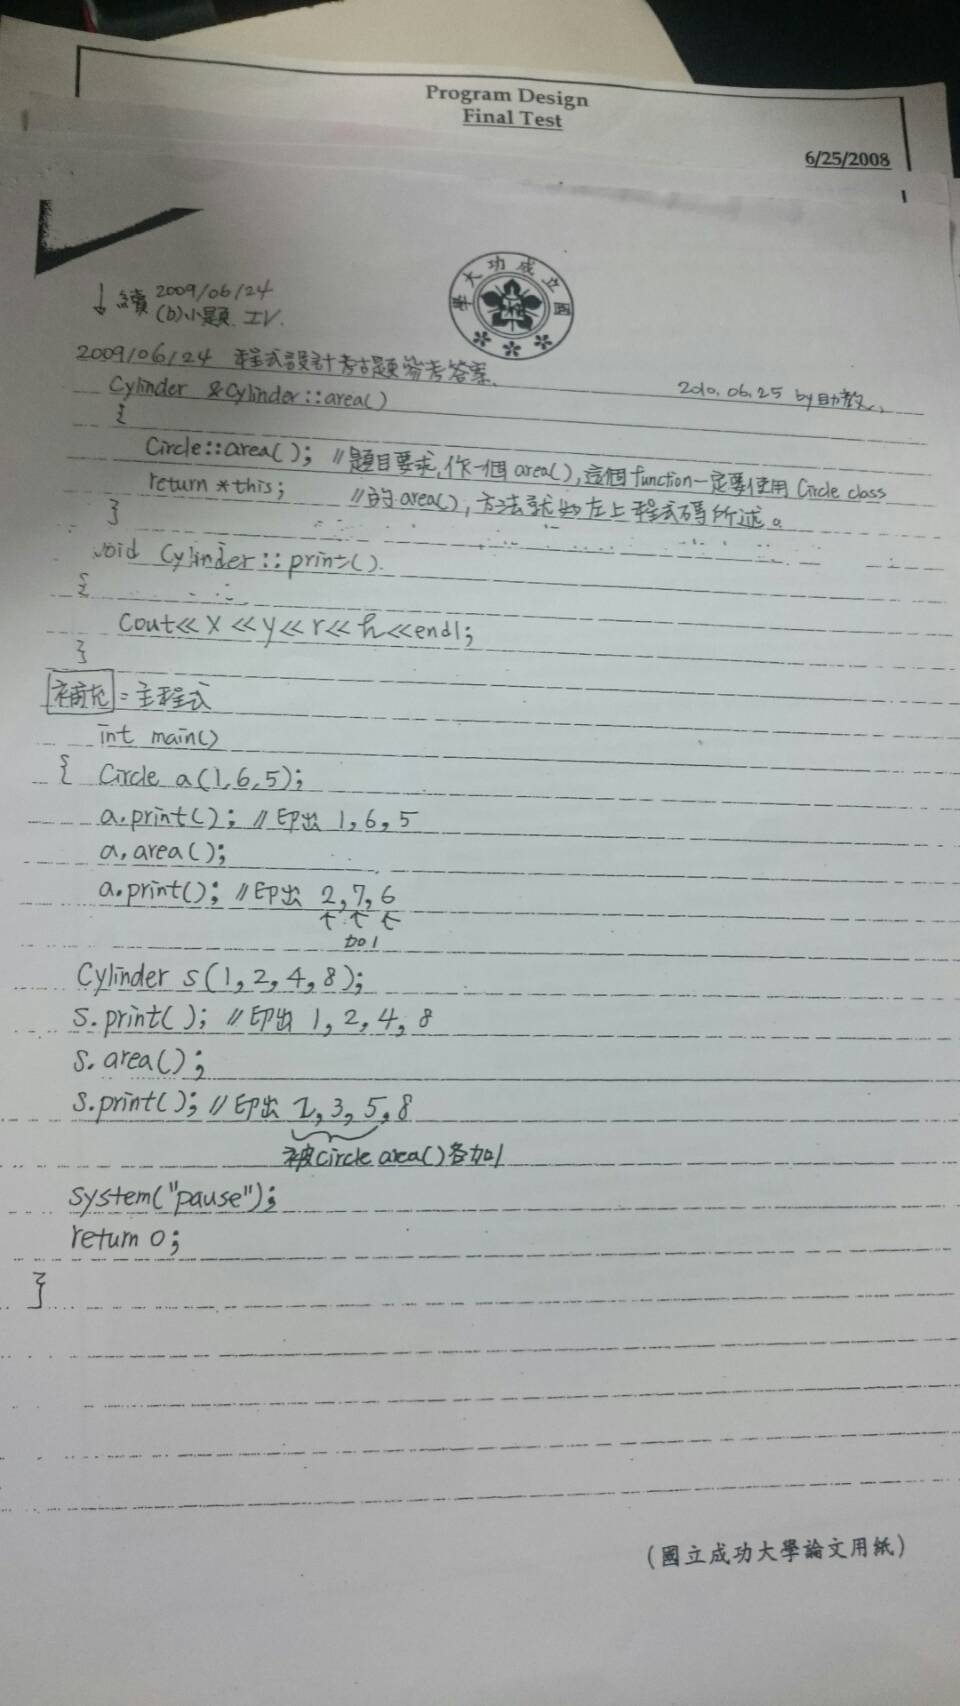 Program Design
Final Test
6/25/2008
國立成功大學
↓ 續 2009/06/24
(b)小題 IV.
2009/06/24 程式設計考古題參考答案
2010.06.25 by 助教
Cylinder &Cylinder::area()
{
Circle::area(); //題目要求,作一個area(),這個function一定要使用Circle class
return *this; //的area(),方法就如左上程式碼所述。
}
void Cylinder::print()
{
Cout<<x<<y<<r<<h<<endl;
}
補充:主程式
int main()
{ Circle a(1,6,5);
a.print(); //印出 1,6,5
a.area();
a.print(); //印出 2,7,6
加1
Cylinder s(1,2,4,8);
s.print(); //印出 1,2,4,8
s.area();
s.print(); //印出 2,3,5,8
被circle area()各加1
system("pause");
return 0;
}
(國立成功大學論文用紙)